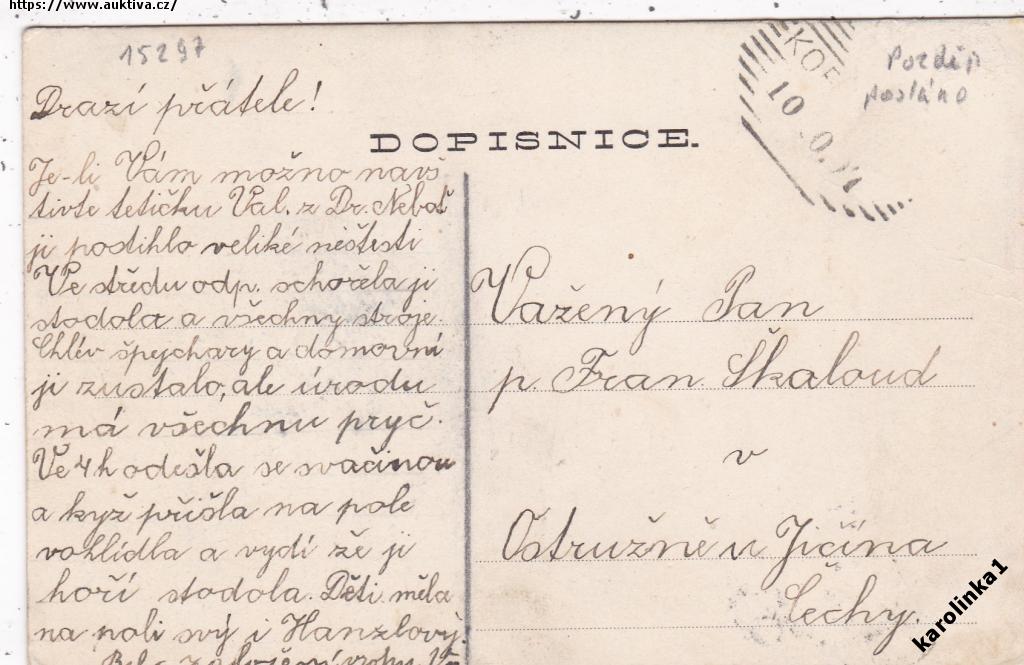 https://www.auktiva.cz/
15297
Drazí přátele!
Je-li Vám možno navš
tivte tetičku Val. z Dr. Neboť
ji potihlo veliké neštesti
Ve středu odp. schořela ji
stodola a všechny stroje.
Chlév špejchary a domovní
ji zustalo, ale úrodu
má všechnu pryč.
Ve 4 h odešla se svačinou
a kyž přišla na pole
vohlídla a vydí že ji
hoří stodola. Děti měla
na poli svý i Hanzlový.
DOPISNICE.
KOP
10
Pozděj
posláno
Važený Pan
p. Fran. Škaloud
v
Ostružně u Jičína
Čechy.
karolinka1